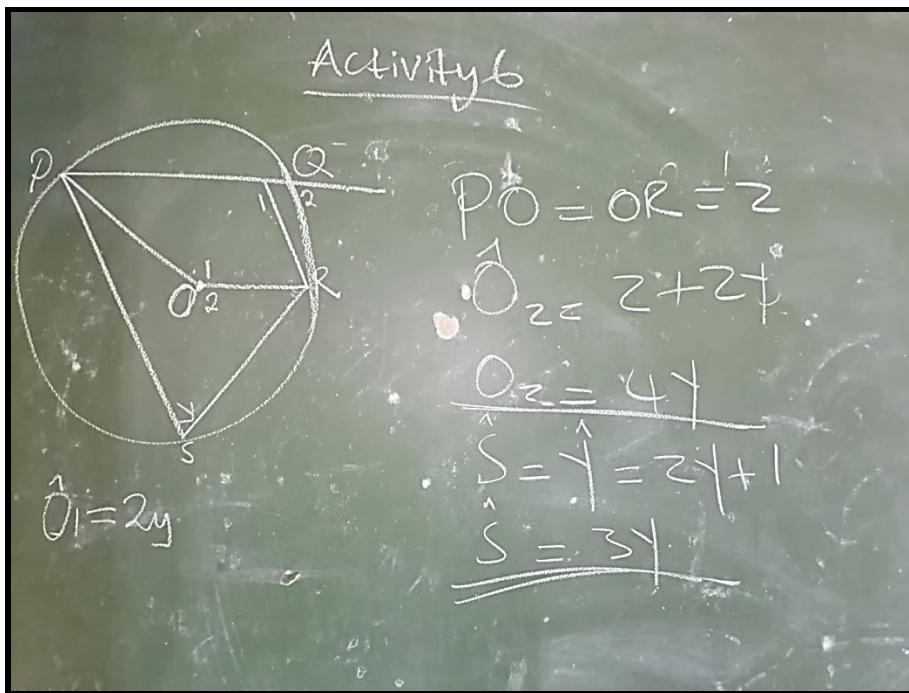 Activity 6
P
Q
1
2
1
O
2
R
y
S
Ô1 = 2y
PO = OR = 2
Ô2 = 2 + 2y
O2 = 4y
Ŝ = ŷ = 2y + 1
Ŝ = 3y